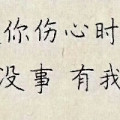 你伤心时
没事 有我